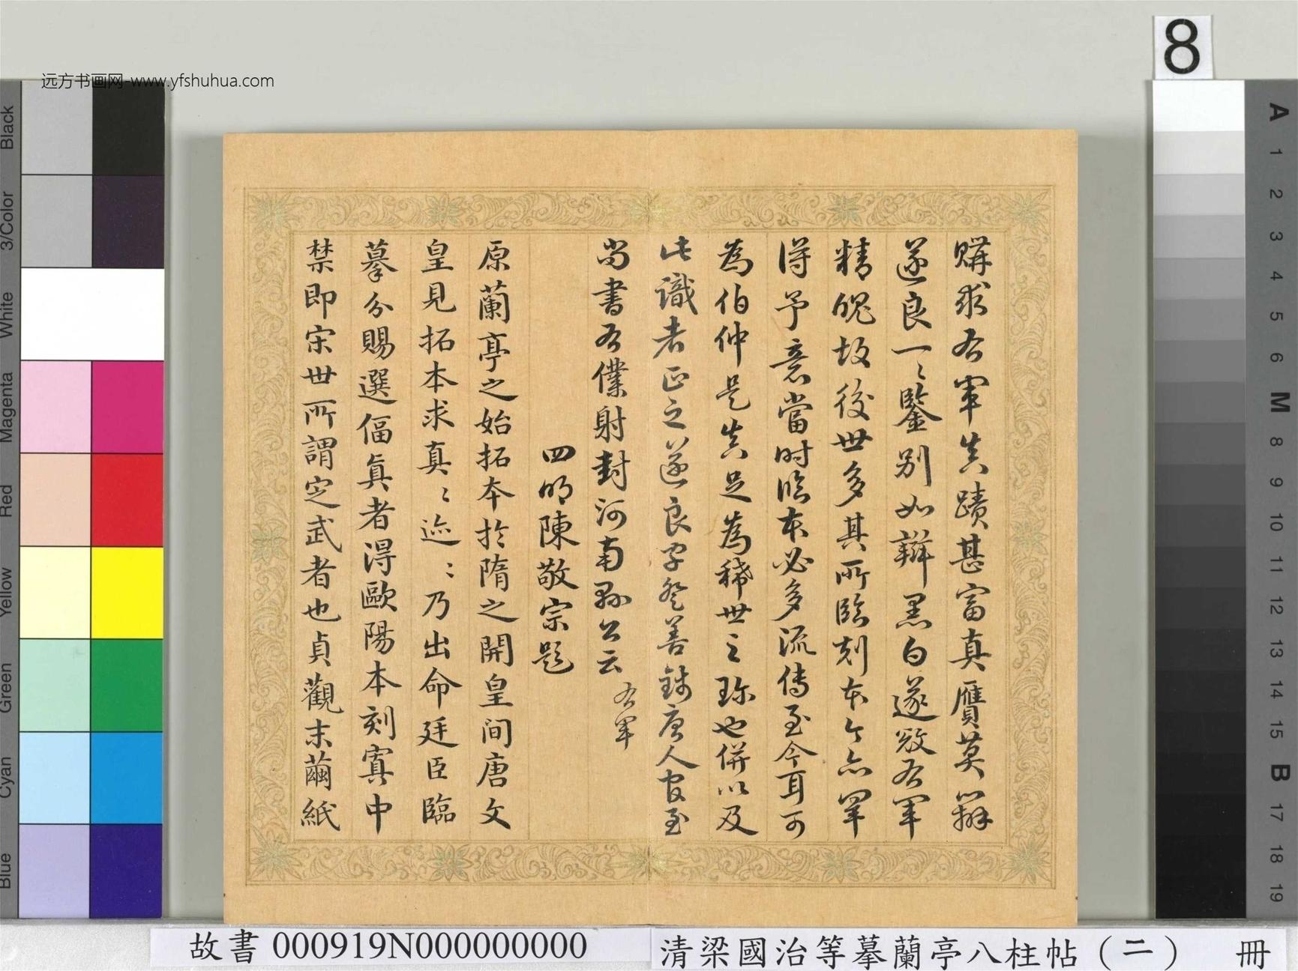 远方书画网-www.yfshuhua.com
8
購求右軍真蹟甚富真贋莫辯
遂良一〻鑒别如辯黑白遂㪅右軍
精魄故後世多其所臨刻本今亦罕
得予意當时臨本必多流傳至今耳可
為伯仲是真足為稀世之珎也併以及
此識者正之遂良字登善錢唐人官至
尚書右僕射封河南縣公云 右軍
四明陳敬宗題
原蘭亭之始拓本於隋之開皇间唐文
皇見拓本求真〻迹〻乃出命廷臣臨
摹分賜選偪真者得歐陽本刻寘中
禁即宋世所謂定武者也貞觀末繭紙
Black
3/Color
White
Magenta
Red
Yellow
Green
Cyan
Blue
A
1
2
3
4
5
6
M
8
9
10
11
12
13
14
15
B
17
18
19
故書 000919N000000000
清梁國治等摹蘭亭八柱帖(二) 冊